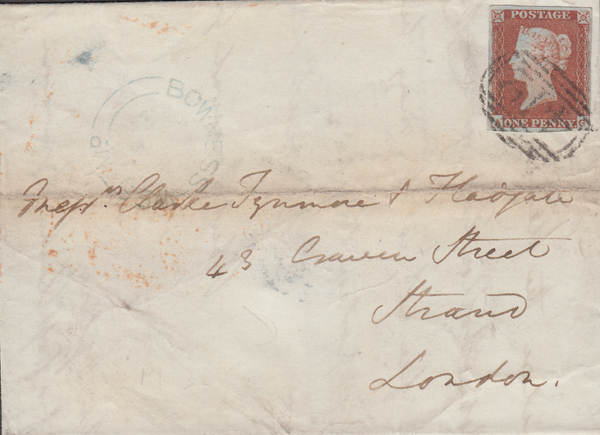 POSTAGE
ONE PENNY
BOWNESS
Messrs. Clarke Fynmore & Fladgate
43 Craven Street
Strand
London.